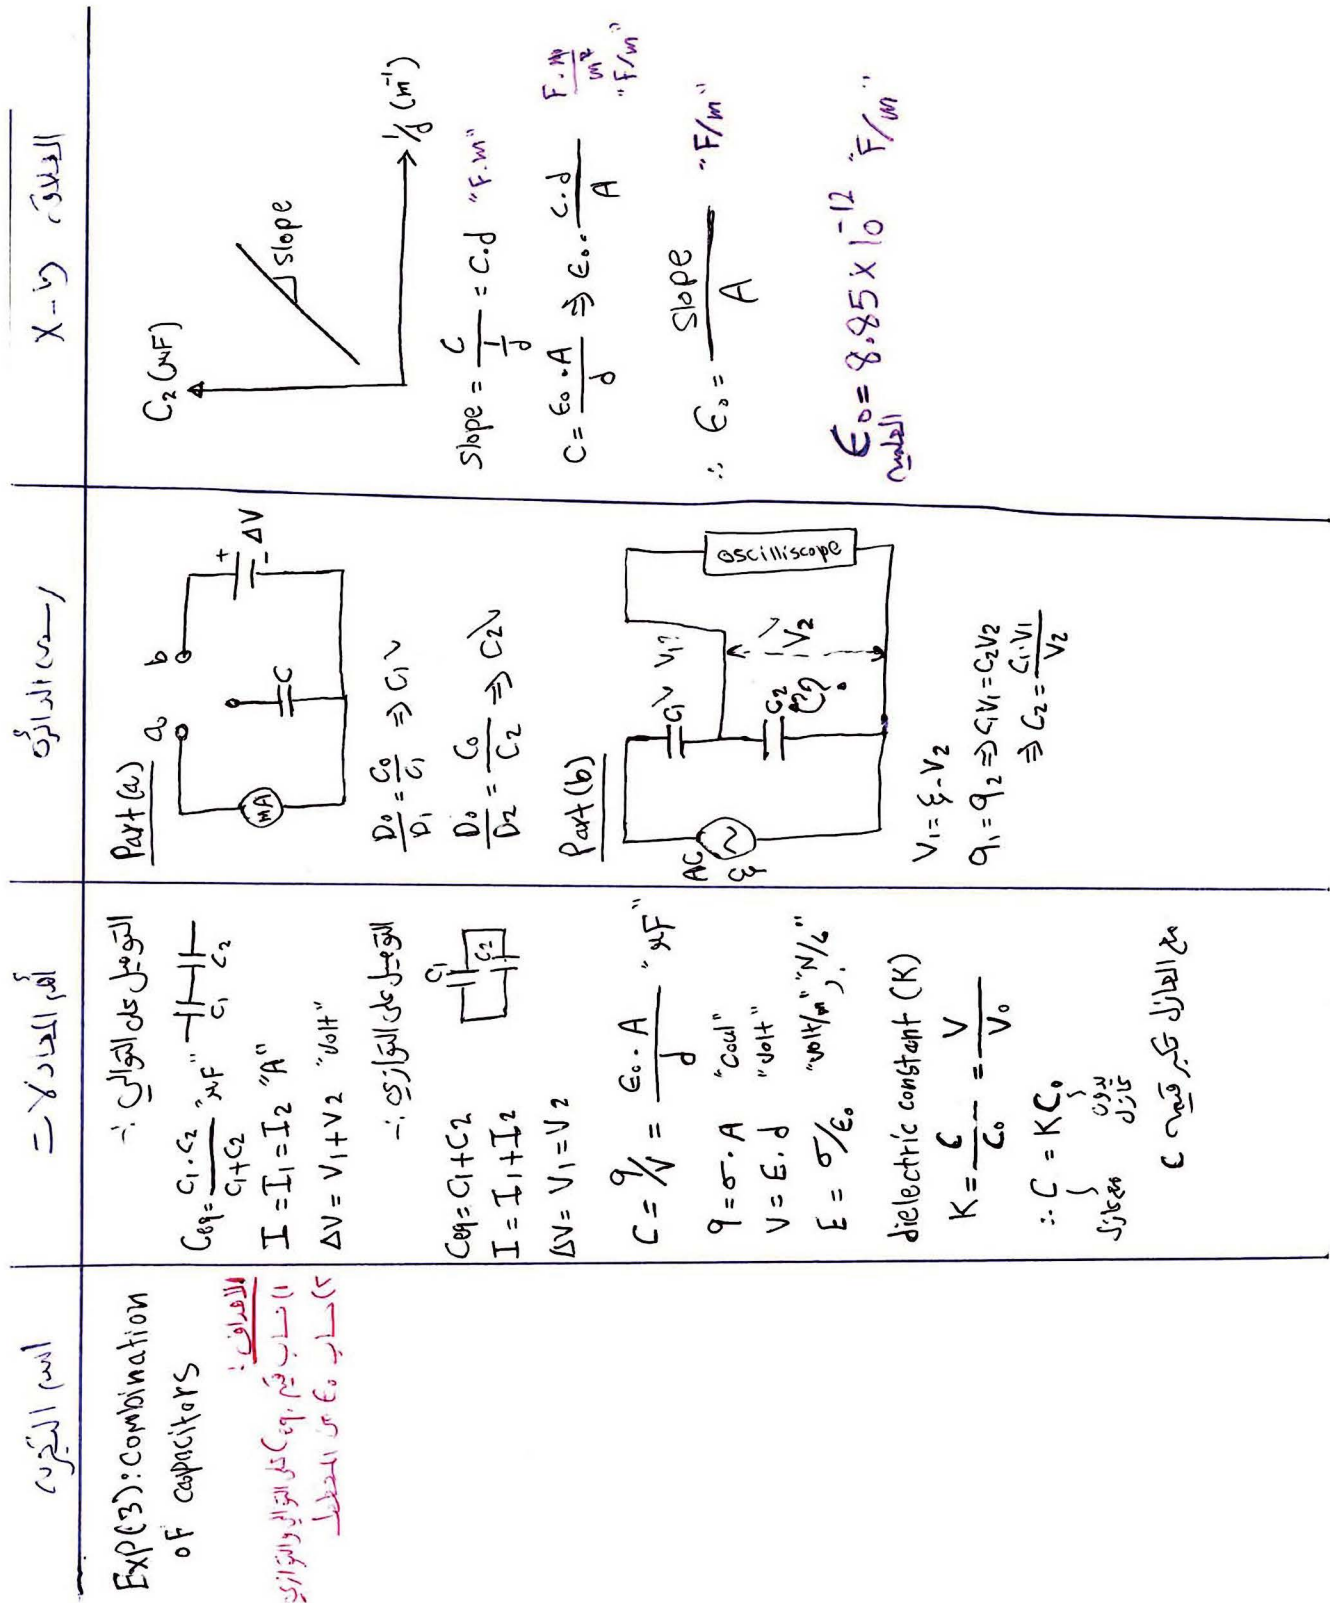 اسم التجربة
أهم المعادلات
رسمة الدائرة
العلاقة x-y
Exp(3): Combination
of capacitors
الأهداف:
١) حساب قيم Ceq. على التوالي والتوازي
٢) حساب ϵ₀ من المخطط
التوصيل على التوالي :-
C₁ C₂
Ceq = C₁.C₂ / C₁+C₂ "μF"
I = I₁ = I₂ "A"
ΔV = V₁+V₂ "Volt"
التوصيل على التوازي :-
C₁
C₂
Ceq = C₁+C₂
I = I₁+I₂
ΔV = V₁ = V₂
C = q/V = ϵ₀.A / d "μF"
q = σ.A "Coul"
V = E.d "Volt"
E = σ/ϵ₀ "Volt/m", "N/C"
dielectric constant (K)
K = C / C₀ = V / V₀
∴ C = KC₀
مع عازل
بدون عازل
مع العازل تكبر قيمة C
Part (a)
a b
mA C + - ΔV
D₀/D₁ = C₀/C₁ ⇒ C₁ ✓
D₀/D₂ = C₀/C₂ ⇒ C₂ ✓
Part (b)
AC
ξ
C₁ ✓ V₁?
C₂
(??)
V₂ ✓
oscilliscope
V₁ = ξ - V₂
q₁ = q₂ ⇒ C₁V₁ = C₂V₂
⇒ C₂ = C₁.V₁ / V₂
C₂ (μF)
slope
1/d (m⁻¹)
Slope = C / 1/d = C.d "F.m"
C = ϵ₀.A / d ⇒ ϵ₀. C.d / A F.m / m² "F/m"
∴ ϵ₀ = Slope / A "F/m"
ϵ₀ = 8.85 x 10⁻¹² "F/m"
العلمية